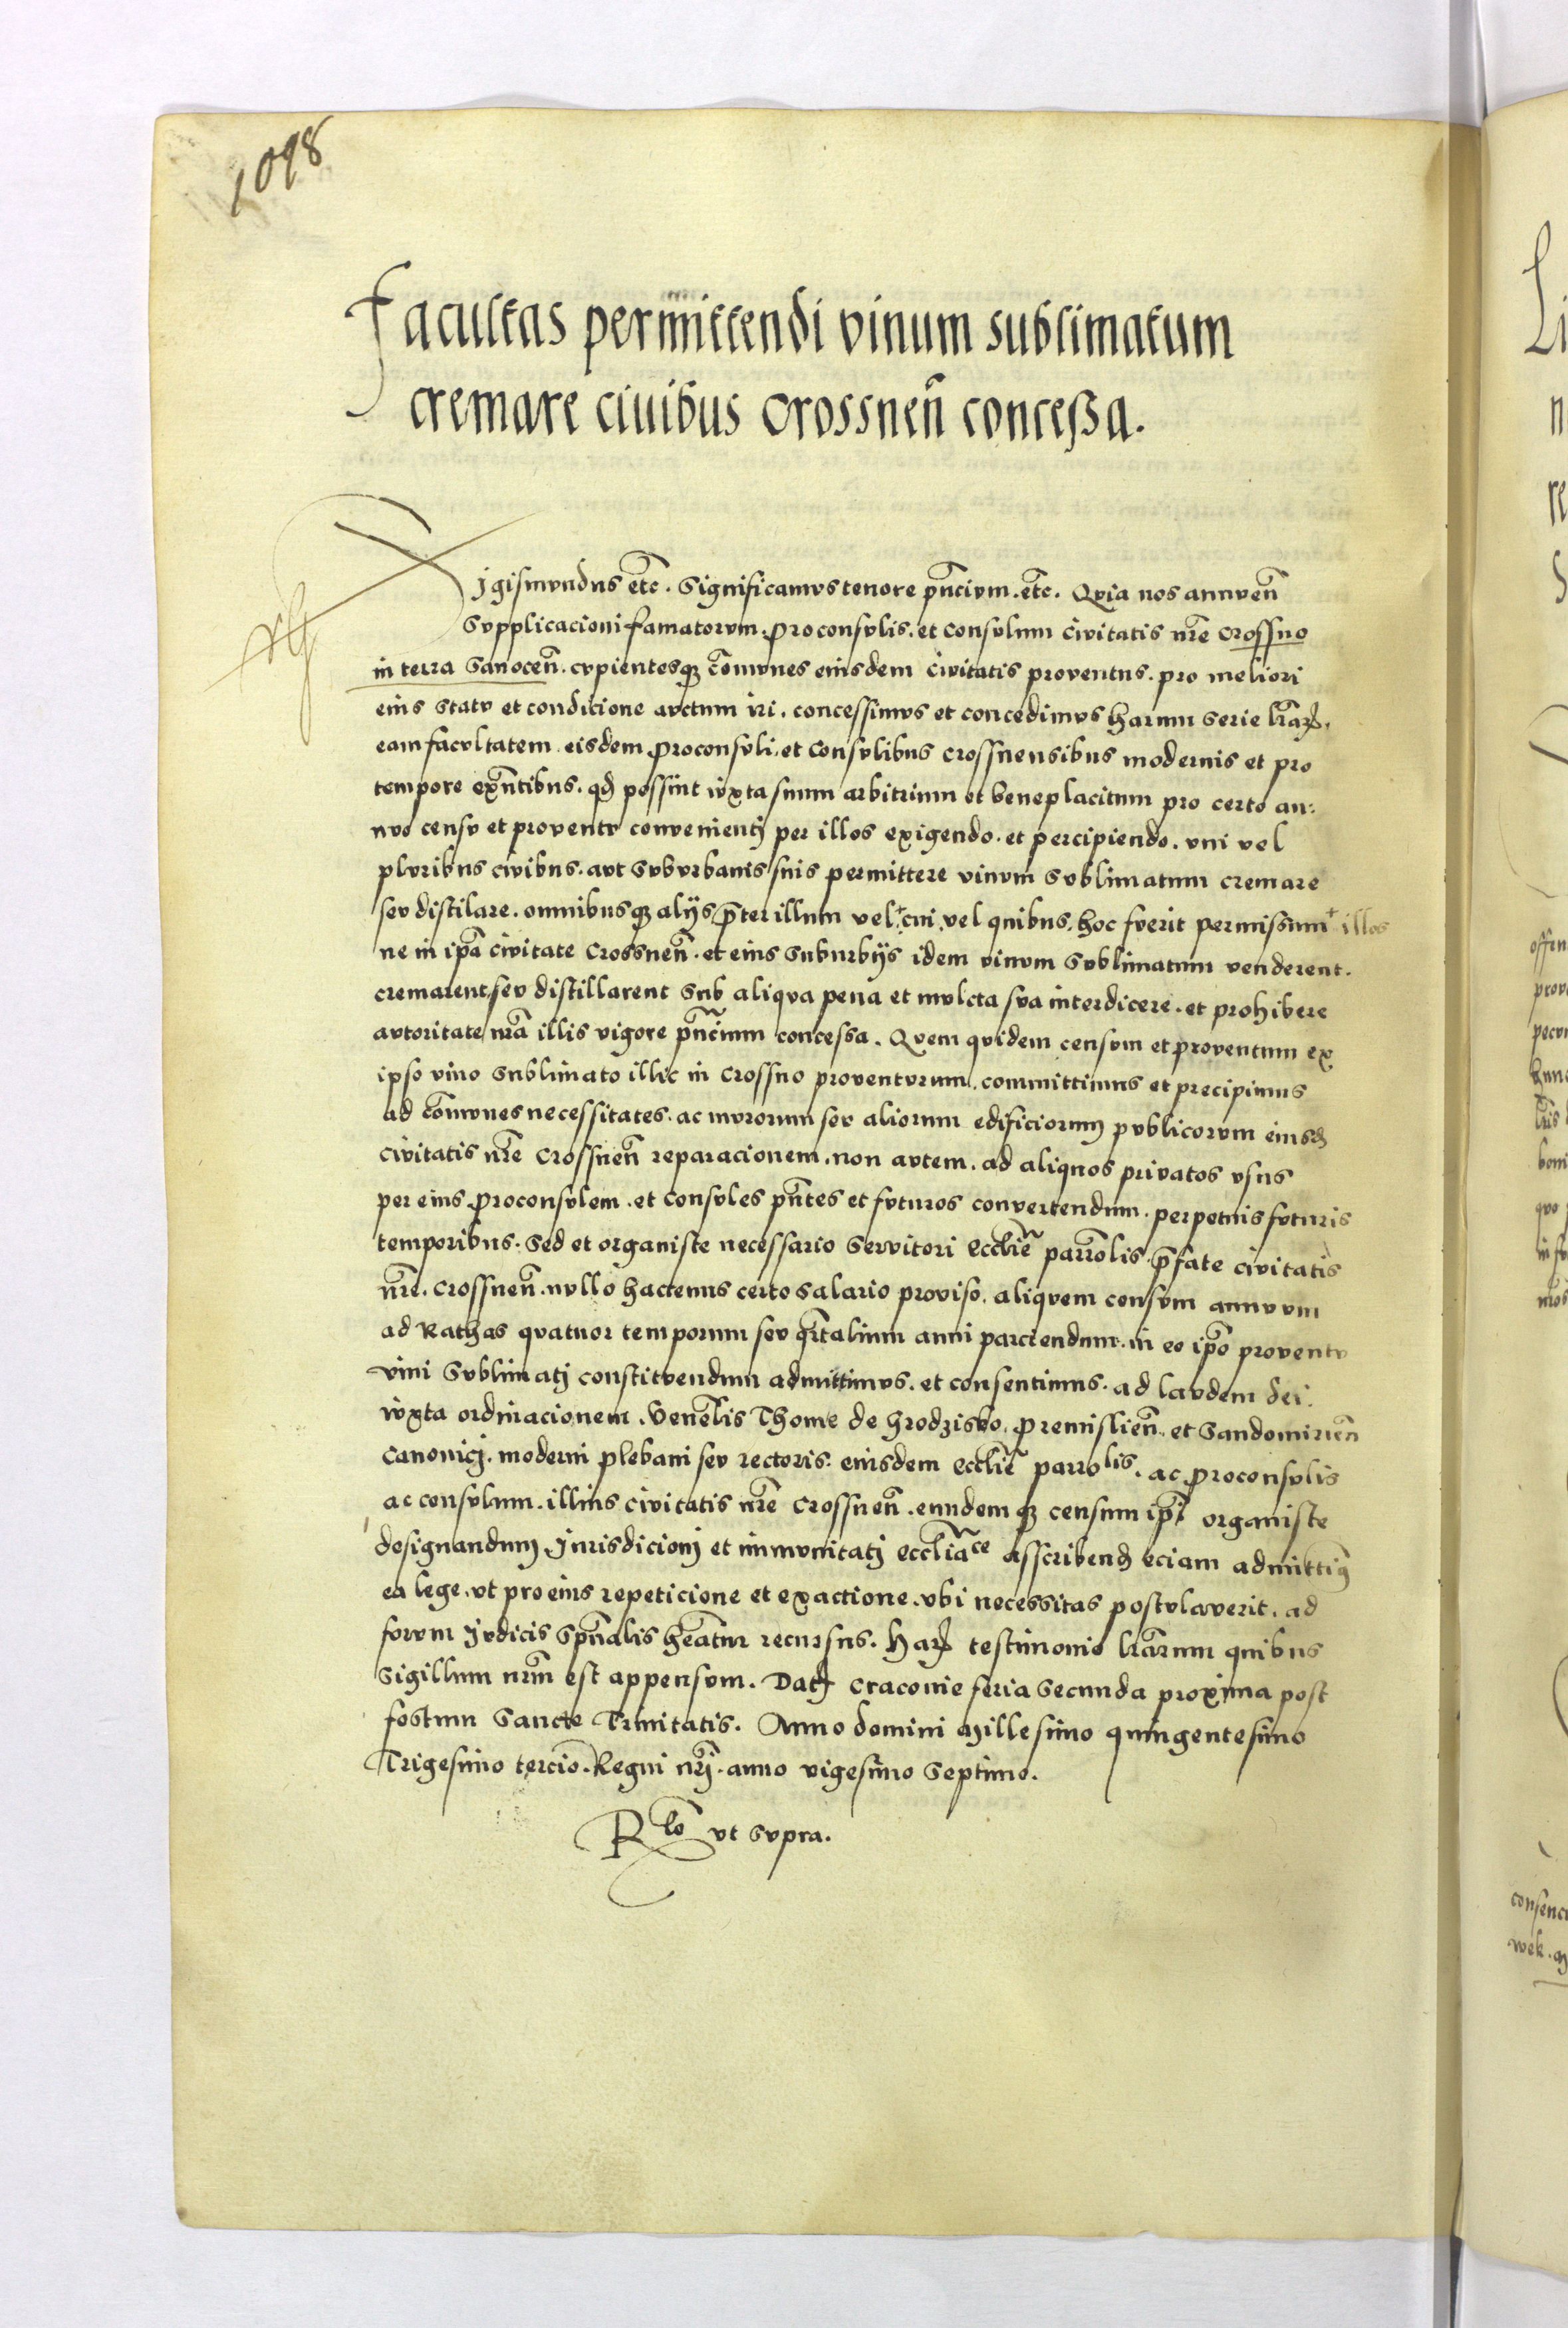 1098
Facultas permittendi vinum sublimatum
cremare civibus Crossneñ concessa.
Sigismundus etc̃. Significamus tenore pñcium. etc̃. Quia nos annueñ
supplicacioni famatorum. proconsulis. et consulum civitatis nr̃e Crossno
in terra Sanoceñ. cupientesqȝ cõmunes eiusdem civitatis proventus. pro meliori
eius statu et condicione auctum iri. concessimus et concedimus harum serie lr̃arꝝ.
eam facultatem eisdem proconsuli. et consulibus Crossnensibus modernis et pro
tempore exñtibus. qđ possint iuxta suum arbitrium et beneplacitum pro certo an:
nuo censu et proventu convenientj per illos exigendo. et percipiendo. uni vel
pluribus civibus. aut suburbanis suis permittere vinum sublimatum cremare
seu distilare. omnibusqȝ alijs p̃ter illum vel + cui. vel quibus. hoc fuerit permissum + illos
ne in ip̃a civitate Crossneñ. et eius suburbijs idem vinum sublimatum venderent.
cremarent. seu distillarent sub aliqua pena et mulcta sua interdicere. et prohibere
autoritate nr̃a illis vigore pñcium concessa. Quem quidem censum et proventum ex
ipso vino sublimato illic in Crossno proventurum. committimus et precipimus
ad cõmunes necessitates. ac murorum seu aliorum edificiorum publicorum eiusđ
civitatis nr̃e Crossneñ reparacionem. non autem. ad aliquos privatos usus
per eius proconsulem. et consules pñtes et futuros convertendum. perpetuis futuris
temporibus. Sed et organiste necessario servitori eccliẽ parrõlis. p̃fate civitatis
nr̃e. Crossneñ. nullo hactenus certo salario proviso. aliquem censum annuum
ad Rathas quatuor temporum seu qr̃talium anni parciendum. in eo ip̃o proventu
vini sublimatj constituendum admittimus. et consentimus. ad laudem dei.
iuxta ordinacionem. Veneƀlis Thome de Hrodzisko. Premislieñ. et Sandomirieñ
Canonicj. moderni plebani seu rectoris. eiusdem eccliẽ parrolis. ac proconsulis
ac consulum. illius civitatis nr̃e Crossneñ. eundemqȝ censum ip̃i organiste
designandum Jurisdicionj et immunitatj eccliãce asscribenđ eciam admittim9
ea lege. ut pro eius repeticione et exactione. ubi necessitas postulaverit. ad
forum Judicis spũalis hẽatur recursus. Harꝝ testimonio lr̃arum quibus
sigillum nr̃m est appensum. Datꝭ Cracovie feria secunda proxima post
festum Sancte Trinitatis. Anno domini Millesimo quingentesimo
Trigesimo tercio. Regni nr̃j. anno vigesimo septimo.
Rlõ ut supra.